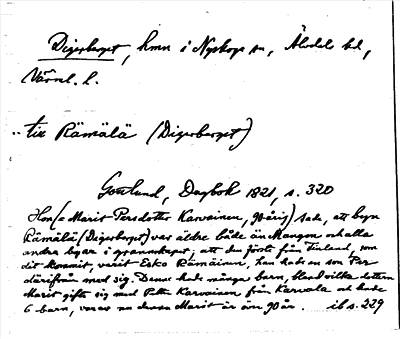 Digerberget, hmn i Nyskoga sn, Älvdals hd,
Värml. l.
till Rämälä (Digerberget)
Gottlund, Dagbok 1821, s. 320
Hon (= Marit Persdotter Karvainen, 90 årig) sade, att byn
Rämälä (Digerberget) var äldre både än Mangen och alla
andra byar i grannskapet, att du förste från Finland, som
dit kommit, varit Esko Rämäinen, han hade en son Per
därifrån med sig. Denne hade många barn, bland vilka dottern
Marit gifte sig med Petter Karvainen från Karvala och hade
6 barn, varav nu denna Marit är öm 90 år. ib s. 229